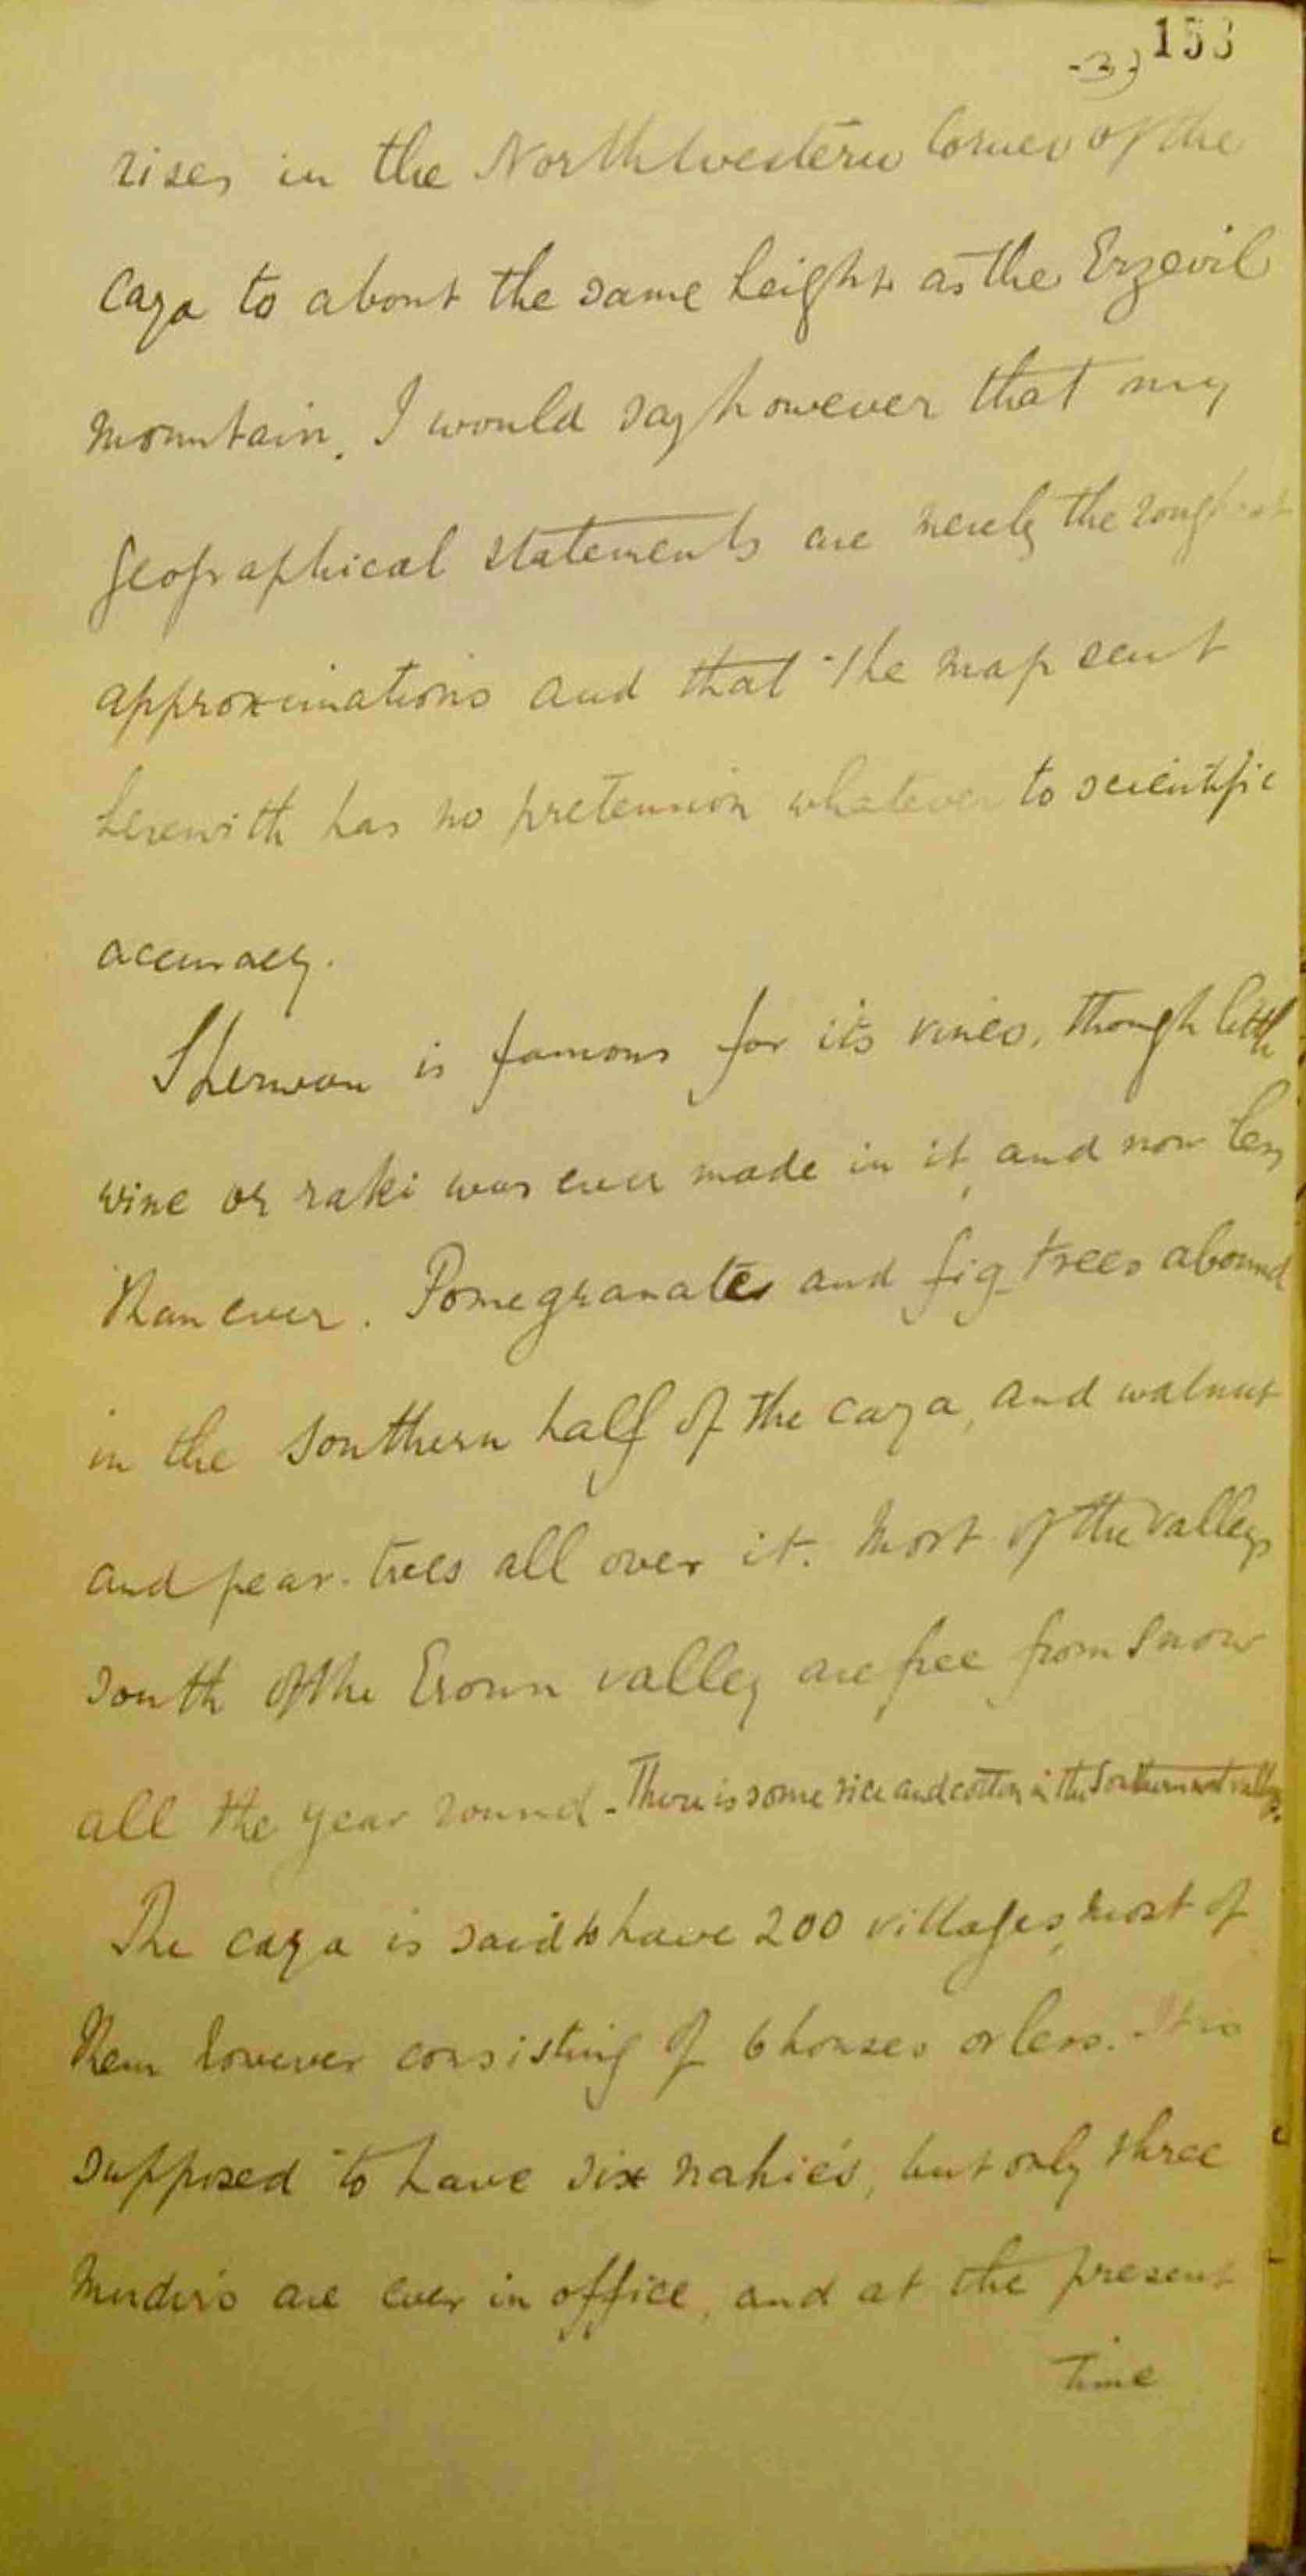 -3-) 153
rises in the Northwestern corner of the
caza to about the same height as the Erzevil
mountain. I would say however that my
geographical statements are merely the roughest
approximations and that the map sent
herewith has no pretension whatever to scientific
accuracy.
Sherwan is famous for its vines, though little
wine or raki was ever made in it, and now less
than ever. Pomegranates and fig-trees abound
in the southern half of the caza, and walnut
and pear-trees all over it. Most of the valleys
south of the Eroun valley are free from snow
all the year round - There is some rice and cotton in the Southernmost valleys.
The caza is said to have 200 villages, most of
them however consisting of 6 houses or less. It is
supposed to have six nahiés, but only three
mudirs are ever in office, and at the present
time